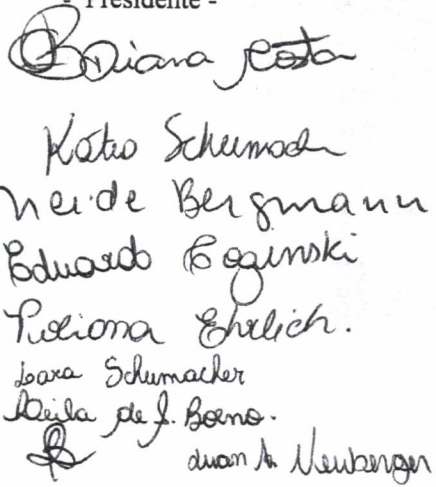 - Presidente -
Diana Costa
Kátia Schumach
Neide Bergmann
Eduardo Coginski
Juliana Ehrlich.
Lara Schumacher
Keila de J. Boeno.
Luan A. Neuberger